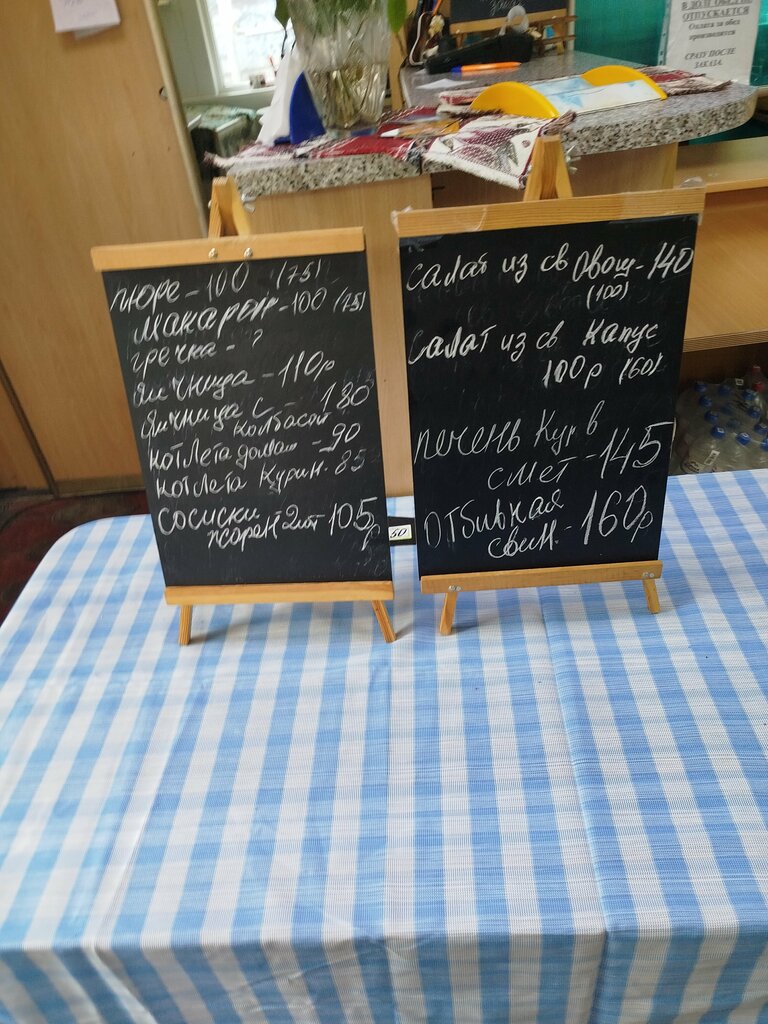 В ДОЛГ ОБЕД НЕ
ОТПУСКАЕТСЯ
Оплата за обед
производится
СРАЗУ ПОСЛЕ
ЗАКАЗА.
пюре - 100 (75)
макарон - 100 (75)
гречка - ?
яичница - 110р
яичница с - 180
колбасой
котлета домаш - 90
котлета курин - 85
сосиски
жарен - 2шт - 105р
50
салат из св овощ - 140
(100)
салат из св капус
100р (60)
печень кур в
смет - 145
отбивная
свин. - 160р